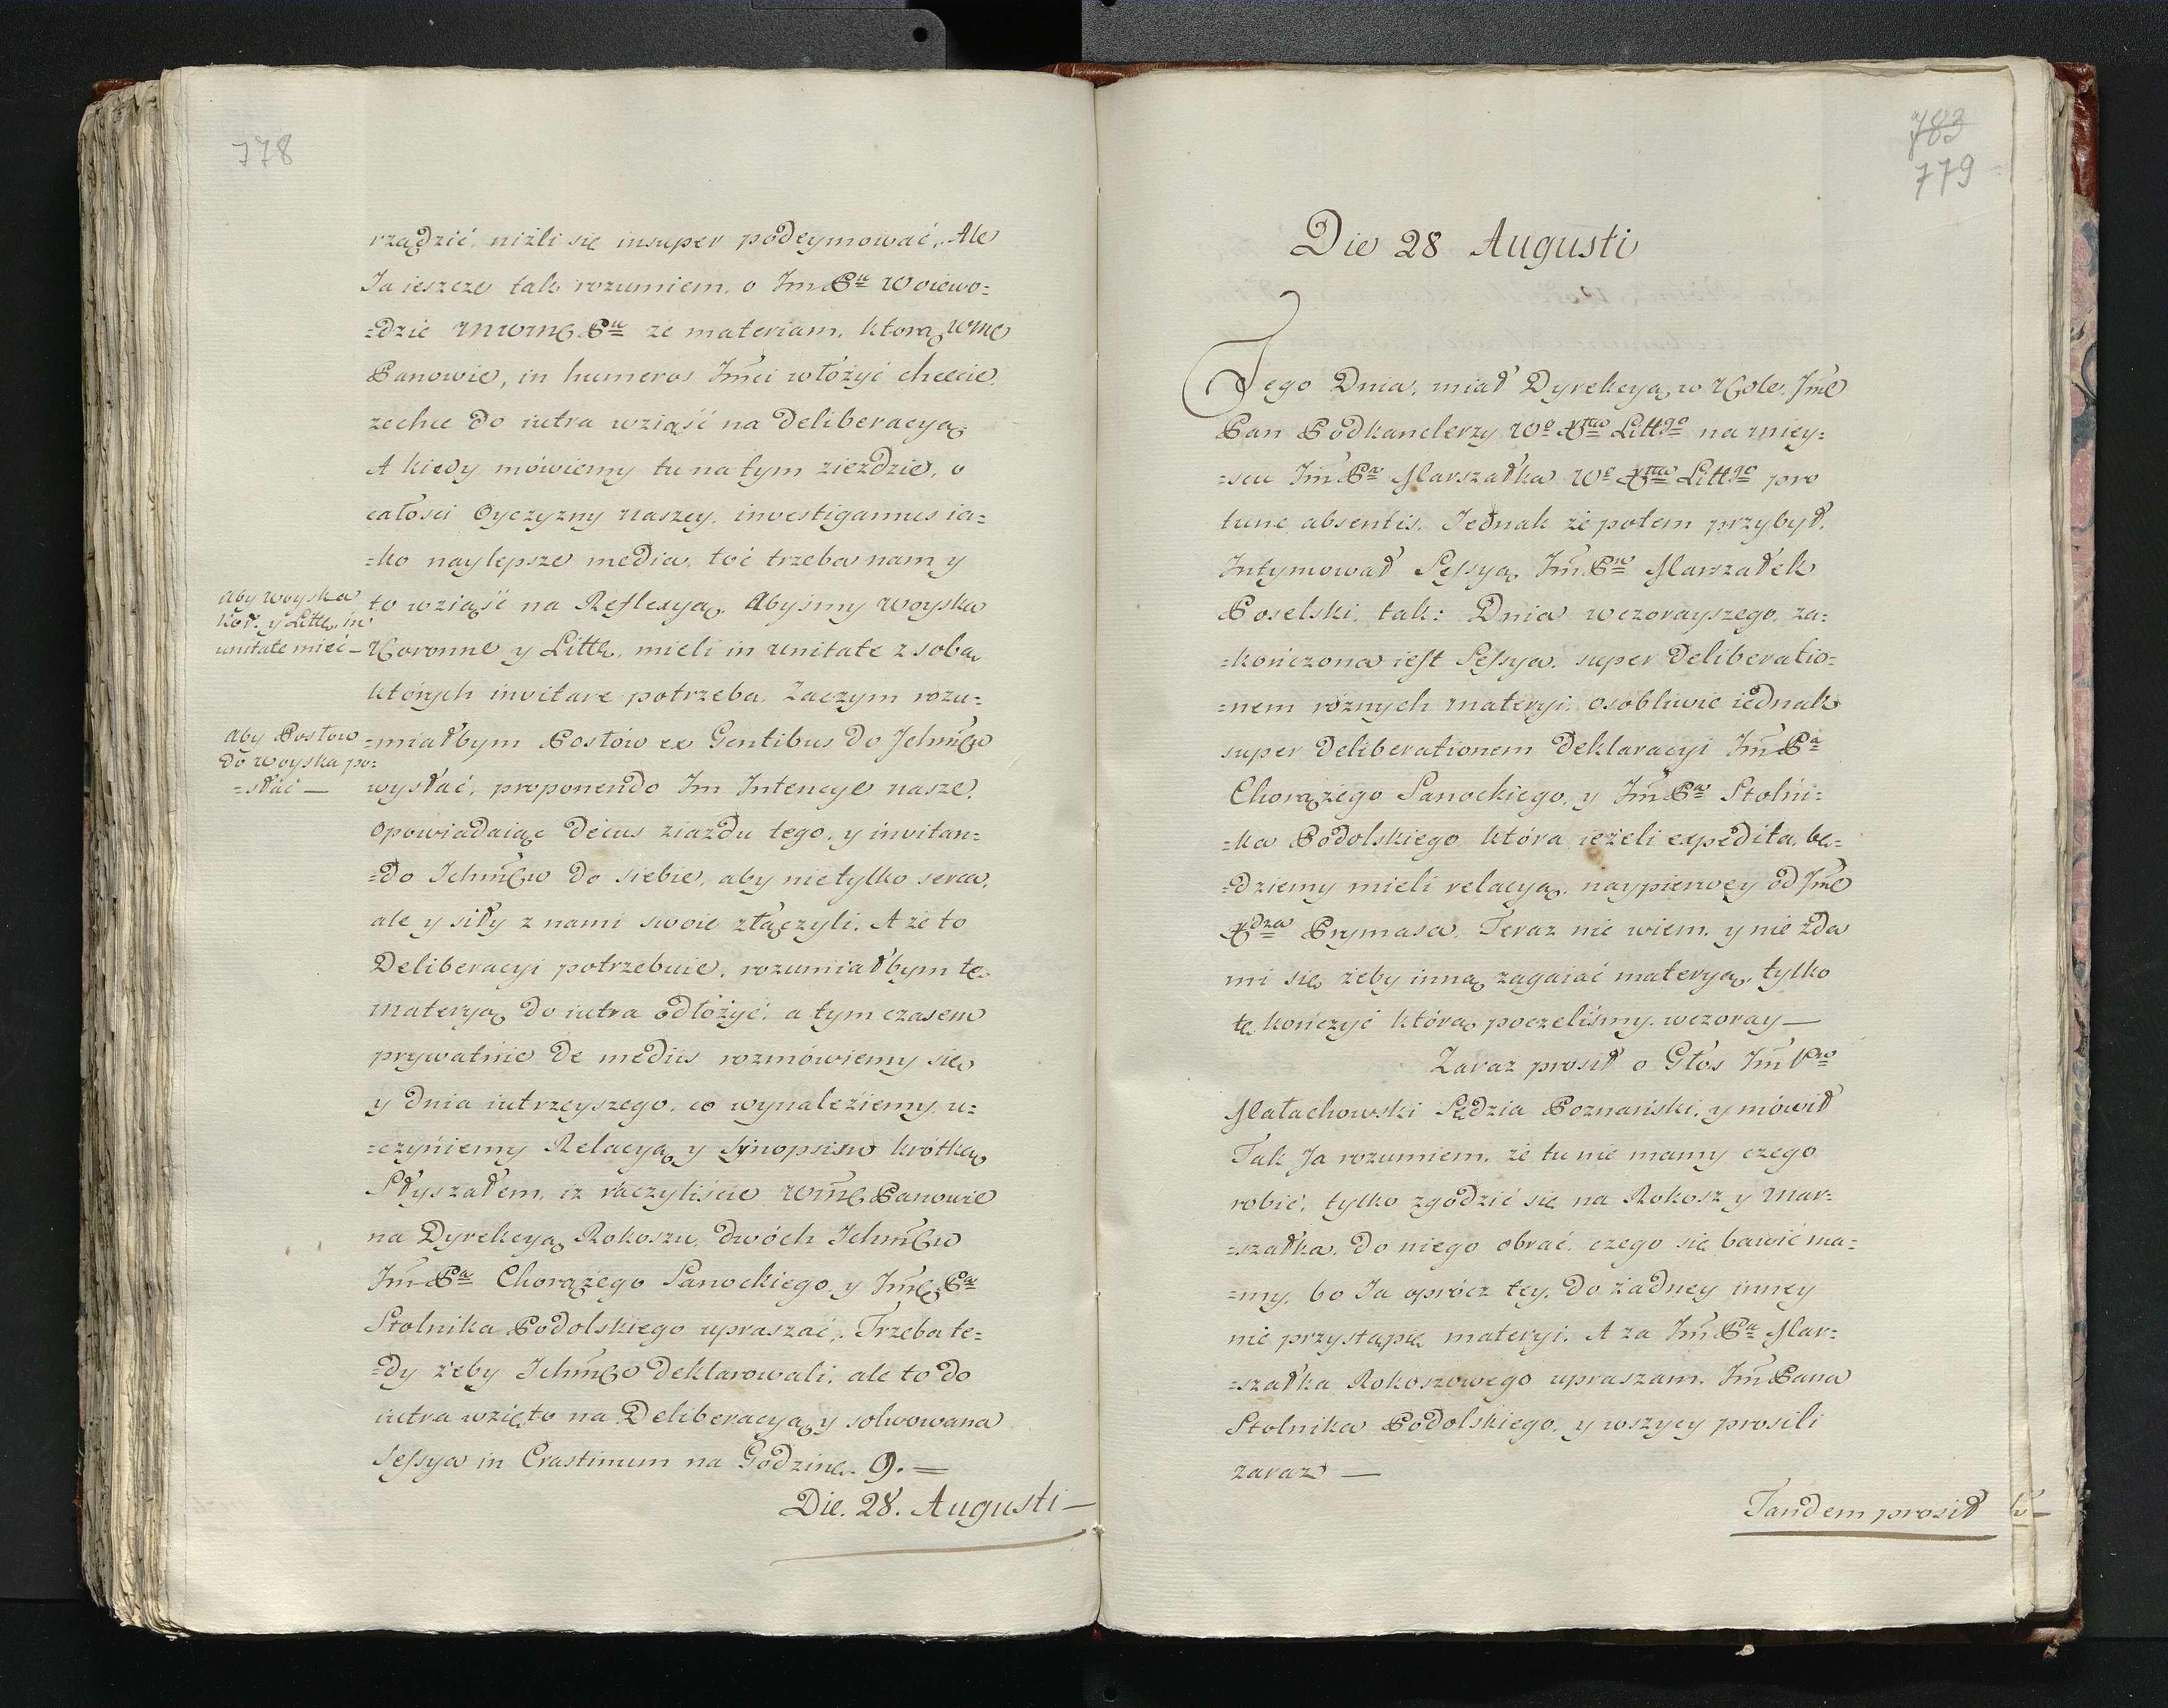 778
rządzić, niżli się insuper podeymować, Ale
Ja ieszcze tak rozumiem, o Jm Pu Woiewo=
=dzie że materiam, ktorą Wme
Panowie, in humeros Jmći włóżyć chcecie,
zechce do iutra wziąść na Deliberacyą,
A kiedy mówiemy tu na tym zieździe, o
całosci Oyczyzny naszey, investigamus ia=
=ko naylepsze media, toć trzeba nam y
to wziąść na Reflexyą, Abyśmy Woyska
Koronne y Littt, mieli in unitate z sobą
Aby Woyska
Kor. y Littt, in
unitate mieć —
których invitare potrzeba, Zaczym rozu=
=miałbym Posłów ex Gentibus do Ichmćw
wysłać, proponendo Im Intencye nasze,
Aby Posłow
do Woyska po=
=słać —
opowiadaiąc decus ziazdu tego, y invitan=
=do Ichmćw do siebie, aby nietylko serca,
ale y siły z nami swoie złączyli. A że to
Deliberacyi potrzebuie, rozumiałbym tę
materyą do iutra odłożyć, a tym czasem
prywatnie de mediis rozmówiemy się
y dnia iutrzeyszego, co wynaleziemy, u=
=czyniemy Relacyą y synopsim krótką
Słyszałem, iz raczyliście Wmć Panowie
na Dyrekcyą Rokoszu, dwóch Ichmćw
Jm Pa Chorążego Sanockiego, y Jmć Pa
Stolnika Podolskiego upraszać, Trzeba te=
=dy żeby Ichmćw deklarowali, ale to do
iutra wzięto na Deliberacyą, y solwowana
Sessya in Crastinum na Godzinę 9. =
Die. 28. Augusti —
783
779
Die 28 Augusti
Tego Dnia, miał Dyrekcyą w Kole, Jme
Pan Podkanclerzy Wo Xtwa Littgo na miey=
=scu Jm Pa Marszałka Wo Xtwa Littgo pro
tunc absentis, Jednak że potem przybył,
Intymował Sessyą Jm Pn Marszałek
Poselski, tak: Dnia wczorayszego, za=
=kończona iest Sessya, super Deliberatio=
=nem róznych materyi, osobliwie iednak
super Deliberationem Deklaracyi Jm Pa
Chorążego Sanockiego, y Jm Pa Stolni=
=ka Podolskiego która ieżeli expedita, bę=
=dziemy mieli relacyą, naypierwey od Jme
Xdza Prymasa, Teraz nie wiem, y nie zda
mi się żeby inną zagaiać materyą, tylko
tę kończyć którą poczeliśmy wczoray —
Zaraz prosił o Głos Jm Pn
Małachowski Sędzia Poznański, y mówił
Tak Ja rozumiem, że tu nie mamy czego
robić, tylko zgodzić się na Rokosz y Mar=
=szałka, do niego obrać, czego się bawić ma=
=my, bo Ja oprócz tey, do żadney inney
nie przystąpię materyi. A za Jm Pa Mar=
=szałka Rokoszowego upraszam, Jm Pana
Stolnika Podolskiego, y wszyscy prosili
zaraz —
Tandem prosił